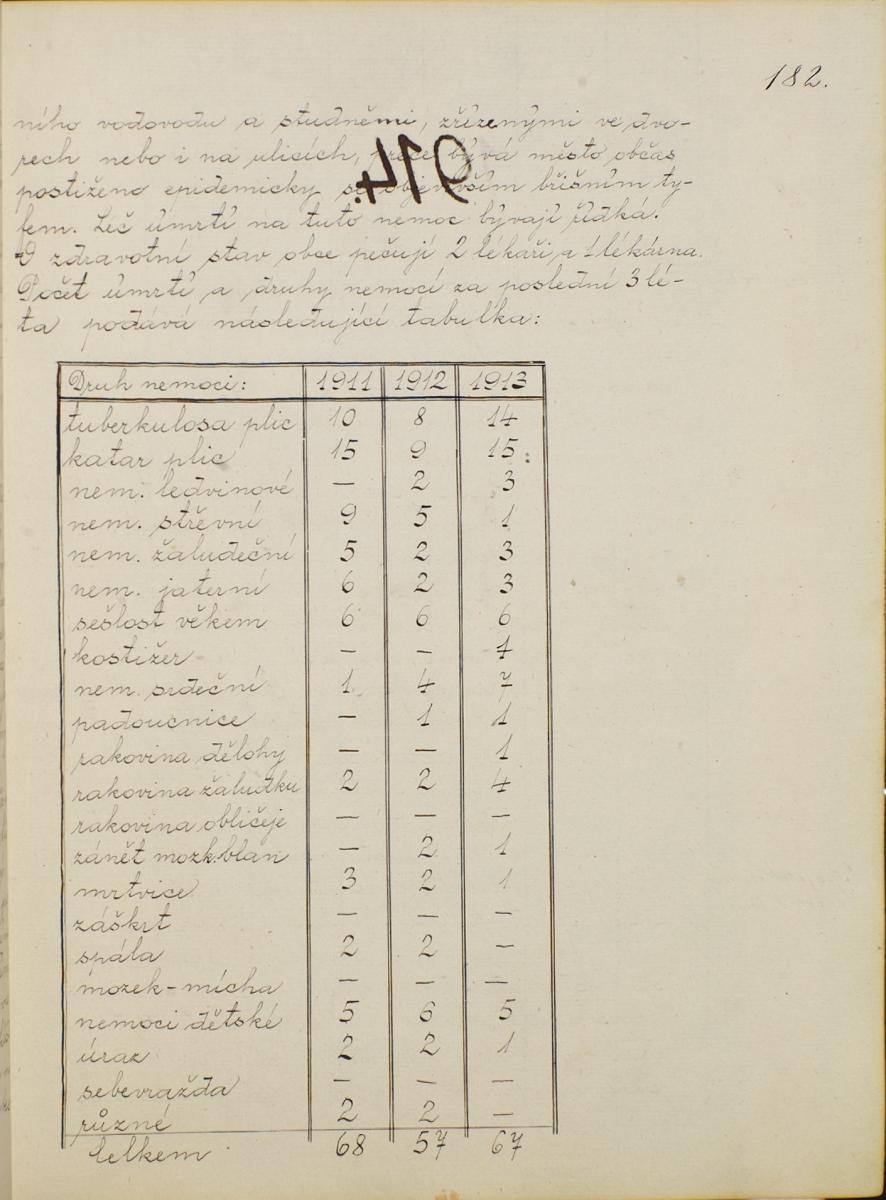 182.
ního vodovodu a studněmi, zřízenými ve dvo-
rech nebo i na ulicích, přece bývá město občas
postiženo epidemicky se objevším břišním ty-
fem. Leč úmrtí na tuto nemoc bývají řídká.
O zdravotní stav obce pečují 2 lékaři a 1 lékárna.
Počet úmrtí a druhy nemocí za poslední 3 lé-
ta podává následující tabulka:
Druh nemoci: 1911 1912 1913
tuberkulosa plic 10 8 14
katar plic 15 9 15
nem. ledvinové — 2 3
nem. střevní 9 5 1
nem. žaludeční 5 2 3
nem. jaterní 6 2 3
sešlost věkem 6 6 6
kostižer — — 1
nem. srdeční 1 4 7
padoucnice — 1 1
rakovina dělohy — — 1
rakovina žaludku 2 2 4
rakovina obličeje — — —
zánět mozk. blan — 2 1
mrtvice 3 2 1
záškrt — — —
spála 2 2 —
mozek-mícha — — —
nemoci dětské 5 6 5
úraz 2 2 1
sebevražda — — —
různé 2 2 —
Celkem 68 57 67